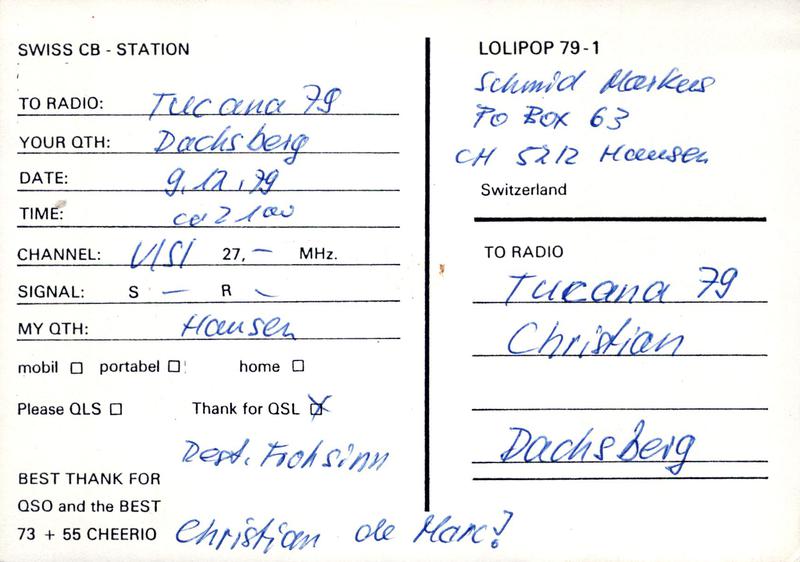 SWISS CB - STATION
TO RADIO: Tucana 79
YOUR QTH: Dachsberg
DATE: 9.12.79
TIME: ca 2100
CHANNEL: VISI 27, — MHz.
SIGNAL: S — R —
MY QTH: Hausen
mobil ☐ portabel ☐ home ☐
Please QLS ☐ Thank for QSL ☒
Rest. Frohsinn
BEST THANK FOR
QSO and the BEST
73 + 55 CHEERIO Christian de Marc!
LOLIPOP 79-1
Schmid Markus
Po Box 63
CH 5212 Hausen
Switzerland
TO RADIO
Tucana 79
Christian
Dachsberg